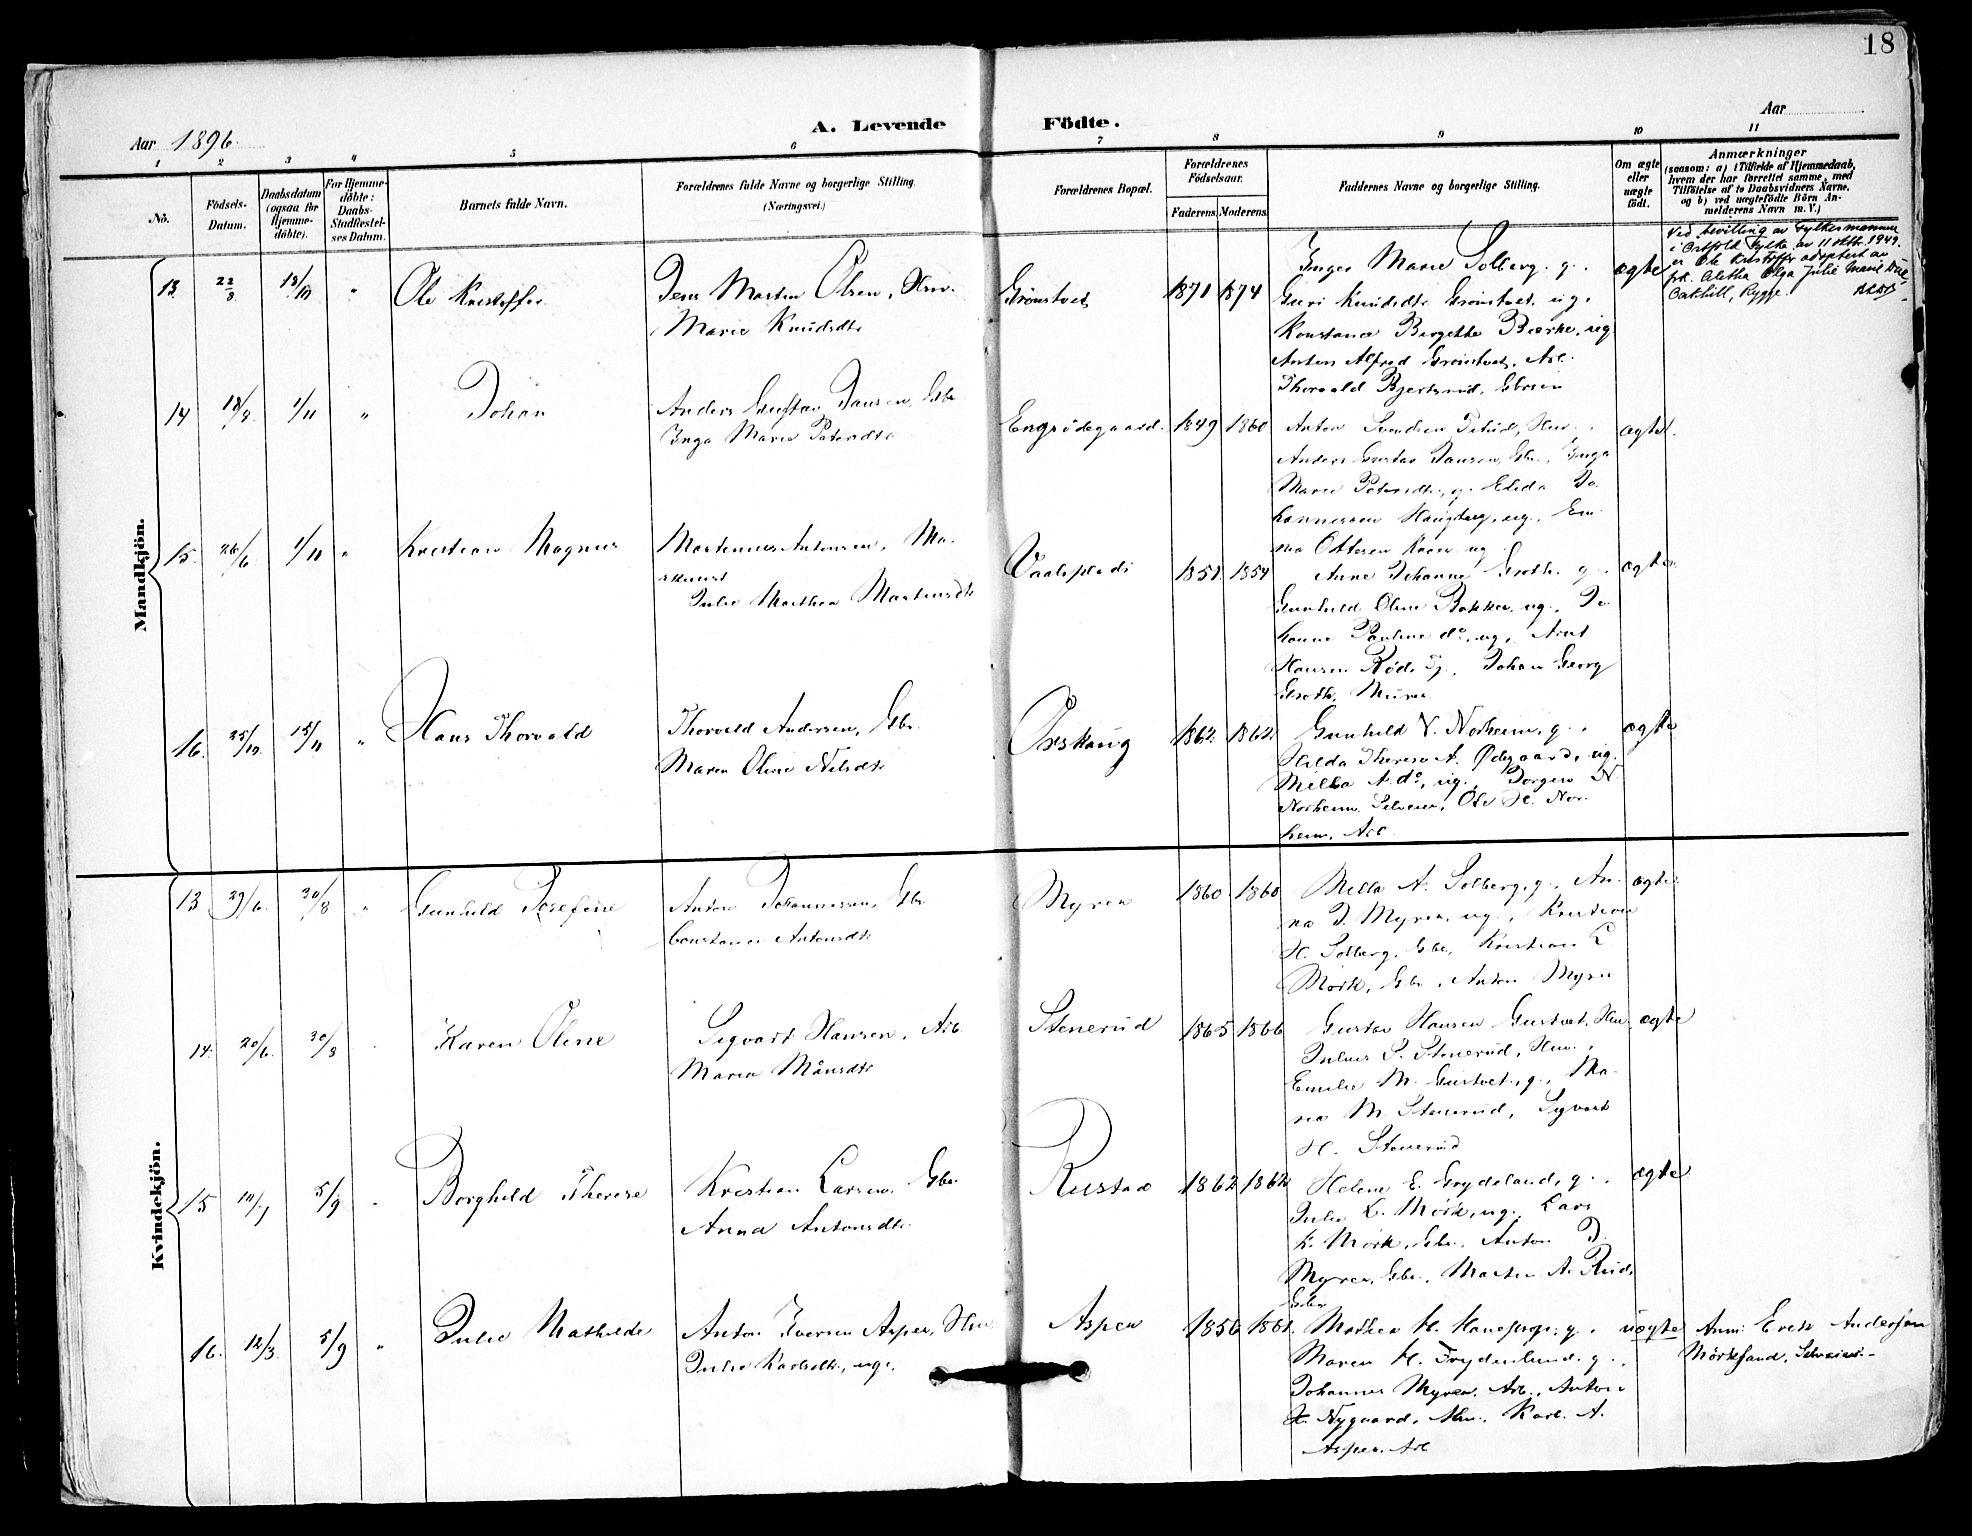 18
Aar 1896.
A. Levende Födte.
Aar
1 2 3 4 5 6 7 8 9 10 11
No.
Födsels-Datum.
Daabsdatum (ogsaa for Hjemme-döbte).
For Hjemme-döbte: Daabs-Stadfæstel-ses Datum.
Barnets fulde Navn.
Forældrenes fulde Navne og borgerlige Stilling.
(Næringsvei.)
Forældrenes Bopæl.
Forældrenes Födselsaar.
Faderens. Moderens.
Faddernes Navne og borgerlige Stilling.
Om ægte eller uægte födt.
Anmærkninger
(saasom: a) i Tilfælde af Hjemmedaab,
hvem der har forrettet samme, med
Tilföielse af to Daabsvidners Navne.
og b) ved uægtefödte Börn An-
melderens Navn m. V.)
Mandkjön.
13. 22/8 18/10 " Ole Kristoffer
Jens Martin Olsen, Hmd.
Marie Knudsdtr
Grönstvet 1871 1874
Inger Marie Solberg, g.
Guri Knudsdtr Grönstvet, ug.
Konstance Birgitte Bjerke, ug
Anton Alfred Grönstvet, Arb.
Thorvald Bjertsrud, Gbrsøn
ægte
Ved bevilling av Fylkesmannen
i Østfold fylke av 11 oktb. 1949.
er Ole Kristoffer adoptert av
frk. Aletha Olga Julie Marie
Rygge.
14 18/9 1/11 " Johan
Anders Gustav Jansen, Gbr
Inga Marie Petersdtr
Engrödegaard. 1849 1860
Anton Svendsen
Anders Gustav Jansen, Gbr., Inga
Marie Petersdtr, g. Elida Jo-
hannessen Haugberg, ug., Em-
ma Ottersen ug.
ægte.
15. 26/6 1/11 " Kristian Magnus
Martinus Antonsen, Ma-
skinist
Julie Mathea Martinsdtr
1851. 1854
Anne Johanne Groth. g.
Gunhild Oline Bakker, ug., Jo-
hanne Pauline do, ug, Arnt
Hansen Röd, Tj., Johan Georg
Groth, Murer
ægte.
16. 25/10 15/11 " Hans Thorvald
Thorvald Andersen, Gbr.
Maren Oline Nilsdtr
Orskaug 1862. 1862
Gunhild N. Norheim, g.,
Hilda Therese A. Ödegaard, ug.
Milla A. do, ug. Jörgen N
Norheim, Selveier, Ole H. Nor-
heim, Arb.
ægte
Kvindekjön.
13 29/6 30/8 " Gunhild Josefine
Anton Johannessen, Gbr
Constance Antonsdtr
Myren 1860 1860
Milla A. Solberg, g., An-
na J. Myren, ug., Kristian
H. Solberg, Gbr, Kristian L
Mörk, Gbr., Anton Myren
ægte
14. 20/6. 30/8 Karen Oline
Sigvart Hansen, Arb.
Maren Månsdtr
Stenerud 1865 1866
Gustav Hansen Gustvet, Hm.
Julius S. Stenerud, Hm.,
Emilie M. Gustvet, g., Ma-
na M. Stenerud, Sigvart
H. Stenerud
ægte
15 10/7 5/9 Borghild Therese
Kristian Larsen, Gbr.
Anna Antonsdtr
Rustad 1862 1862
Helene E. Grydeland, g.,
Julie L. Mörk, ug., Lars
K. Mörk, Gbr., Anton J.
Myren, Gbr., Martin A. Rud,
Gbr
ægte
16. 12/3. 5/9 " Julie Mathilde
Anton Iversen Aspen, Hm
Julie Karlsdtr, ug.
Aspen 1856 1861.
Mathea H. g.,
Maren H. Frydenlund, g.,
Johannes Myren, Arb., Anton
H. Nygaard, Hm., Karl A.
Aspen, Arb
uægte
Anm: Erik Andersen
Mörkesand, Selveier.